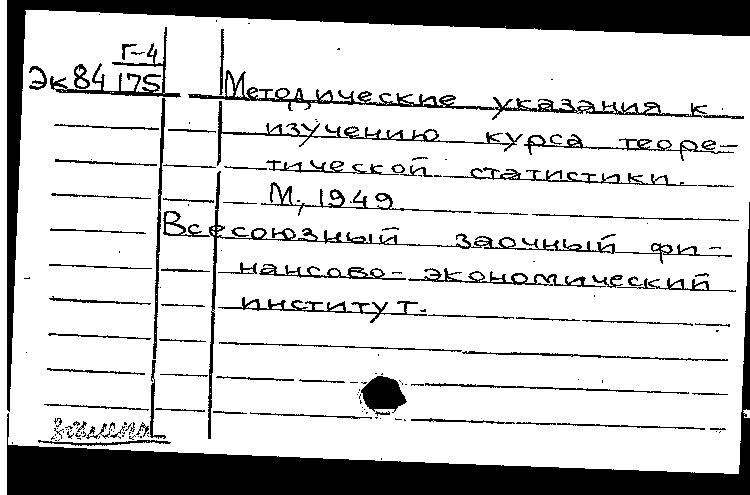 Г-4
Эк84 175
Методические указания к
изучению курса теоре-
тической статистики.
М., 1949.
Всесоюзный заочный фи-
нансово-экономический
институт.